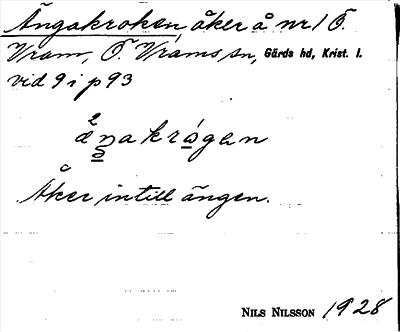 Ängakroken, åker å nr 1 Ö.
Vram, Ö. Vrams sn, Gärds hd, Krist. l.
vid 9 i p 93
Åker intill ängen.
NILS NILSSON 1928